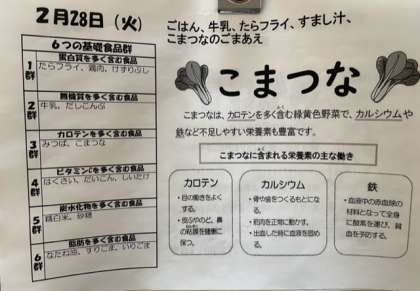 2月28日（火）
ごはん、牛乳、たらフライ、すまし汁、
こまつなのごまあえ
6つの基礎食品群
1群
蛋白質を多く含む食品
たらフライ、鶏肉、けずりぶし
2群
無機質を多く含む食品
牛乳、だしこんぶ
3群
カロテンを多く含む食品
みつば、こまつな
4群
ビタミンCを多く含む食品
はくさい、だいこん、しいたけ
5群
炭水化物を多く含む食品
精白米、砂糖
6群
脂肪を多く含む食品
なたね油、すりごま、いりごま
こまつな
こまつなは、カロテンを多く含む緑黄色野菜で、カルシウムや
鉄など不足しやすい栄養素も豊富です。
こまつなに含まれる栄養素の主な働き
カロテン
・目の働きをよく
する。
・皮ふやのど、鼻
の粘膜を健康に
保つ。
カルシウム
・骨や歯をつくるもとにな
る。
・筋肉を正常に動かす。
・出血した時に血液を固め
る。
鉄
・血液中の赤血球の
材料となって全身
に酸素を運び、貧
血を予防する。